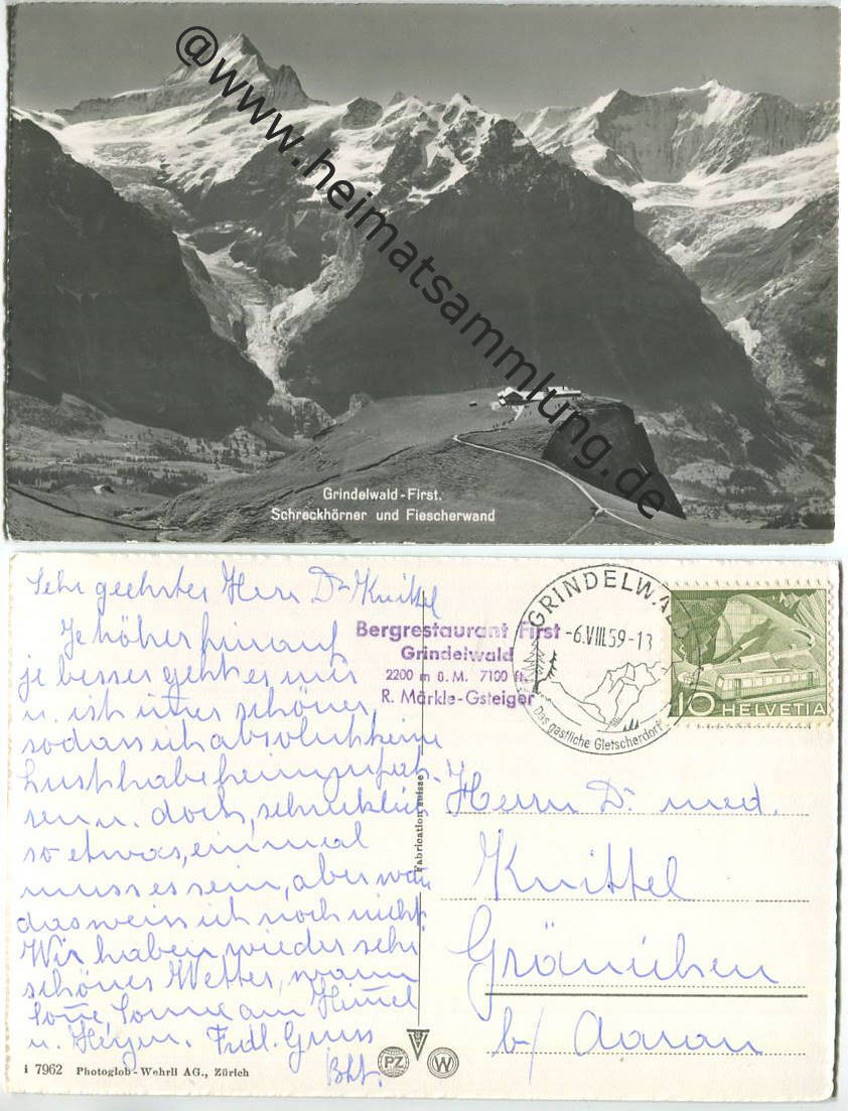 @www.heimatsammlung.de
Grindelwald-First.
Schreckhörner und Fiescherwand
Sehr geehrter Herr Dr Knittel
Je höher hinauf
je besser geht es mir
u. ist immer schöner,
sodass ich absolut keine
Lust habe heimzufah-
ren u. doch, schrecklich
so etwas, einmal
muss es sein, aber wann
das weiss ich noch nicht.
Wir haben wieder sehr
schönes Wetter, warm
Sonne am Himmel
u. Herzen. Frdl. Gruss
Bergrestaurant First
Grindelwald
2200 m ü. M. 7100 ft.
R. Märkle-Gsteiger
GRINDELWALD
-6.VIII.59-13
Das gastliche Gletscherdorf
10 HELVETIA
Fabrication suisse
Herrn Dr. med.
Knittel
Gränichen
b/ Aarau
i 7962 Photoglob-Wehrli AG., Zürich
PZ
W